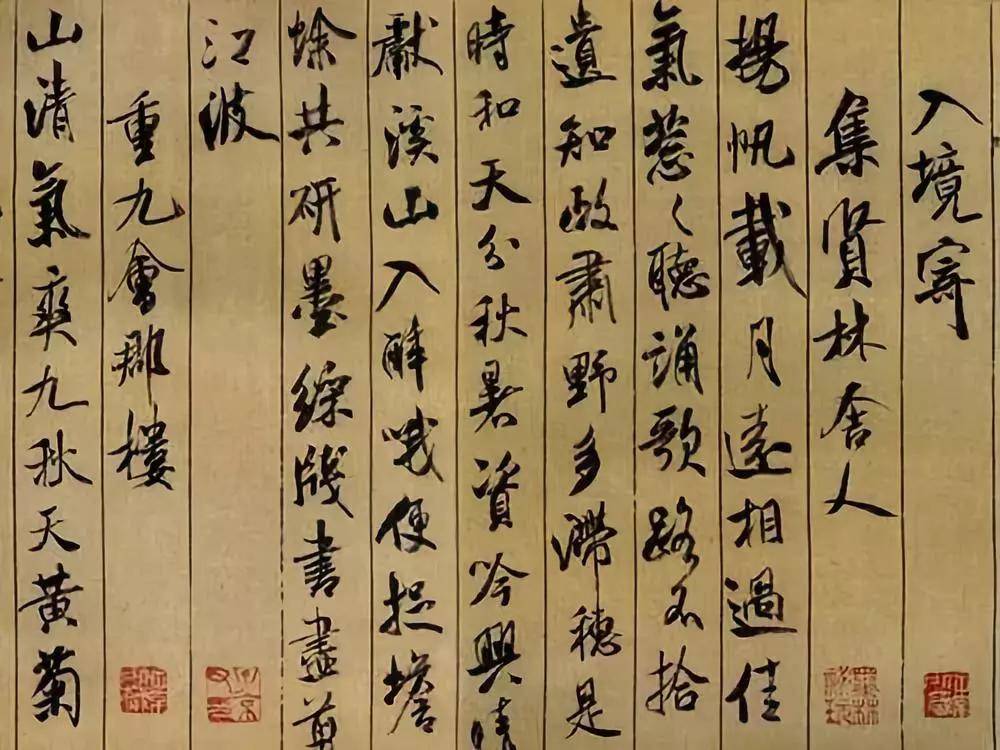 入境寄
集賢林舍人
揚帆載月遠相過佳
氣蔥々聽誦歌路不拾
遺知政肅野多滯穗是
時和天分秋暑資吟興晴
獻溪山入醉哦便捉蟾
蜍共研墨綵牋書盡剪
江波
重九會郡樓
山清氣爽九秋天黃菊